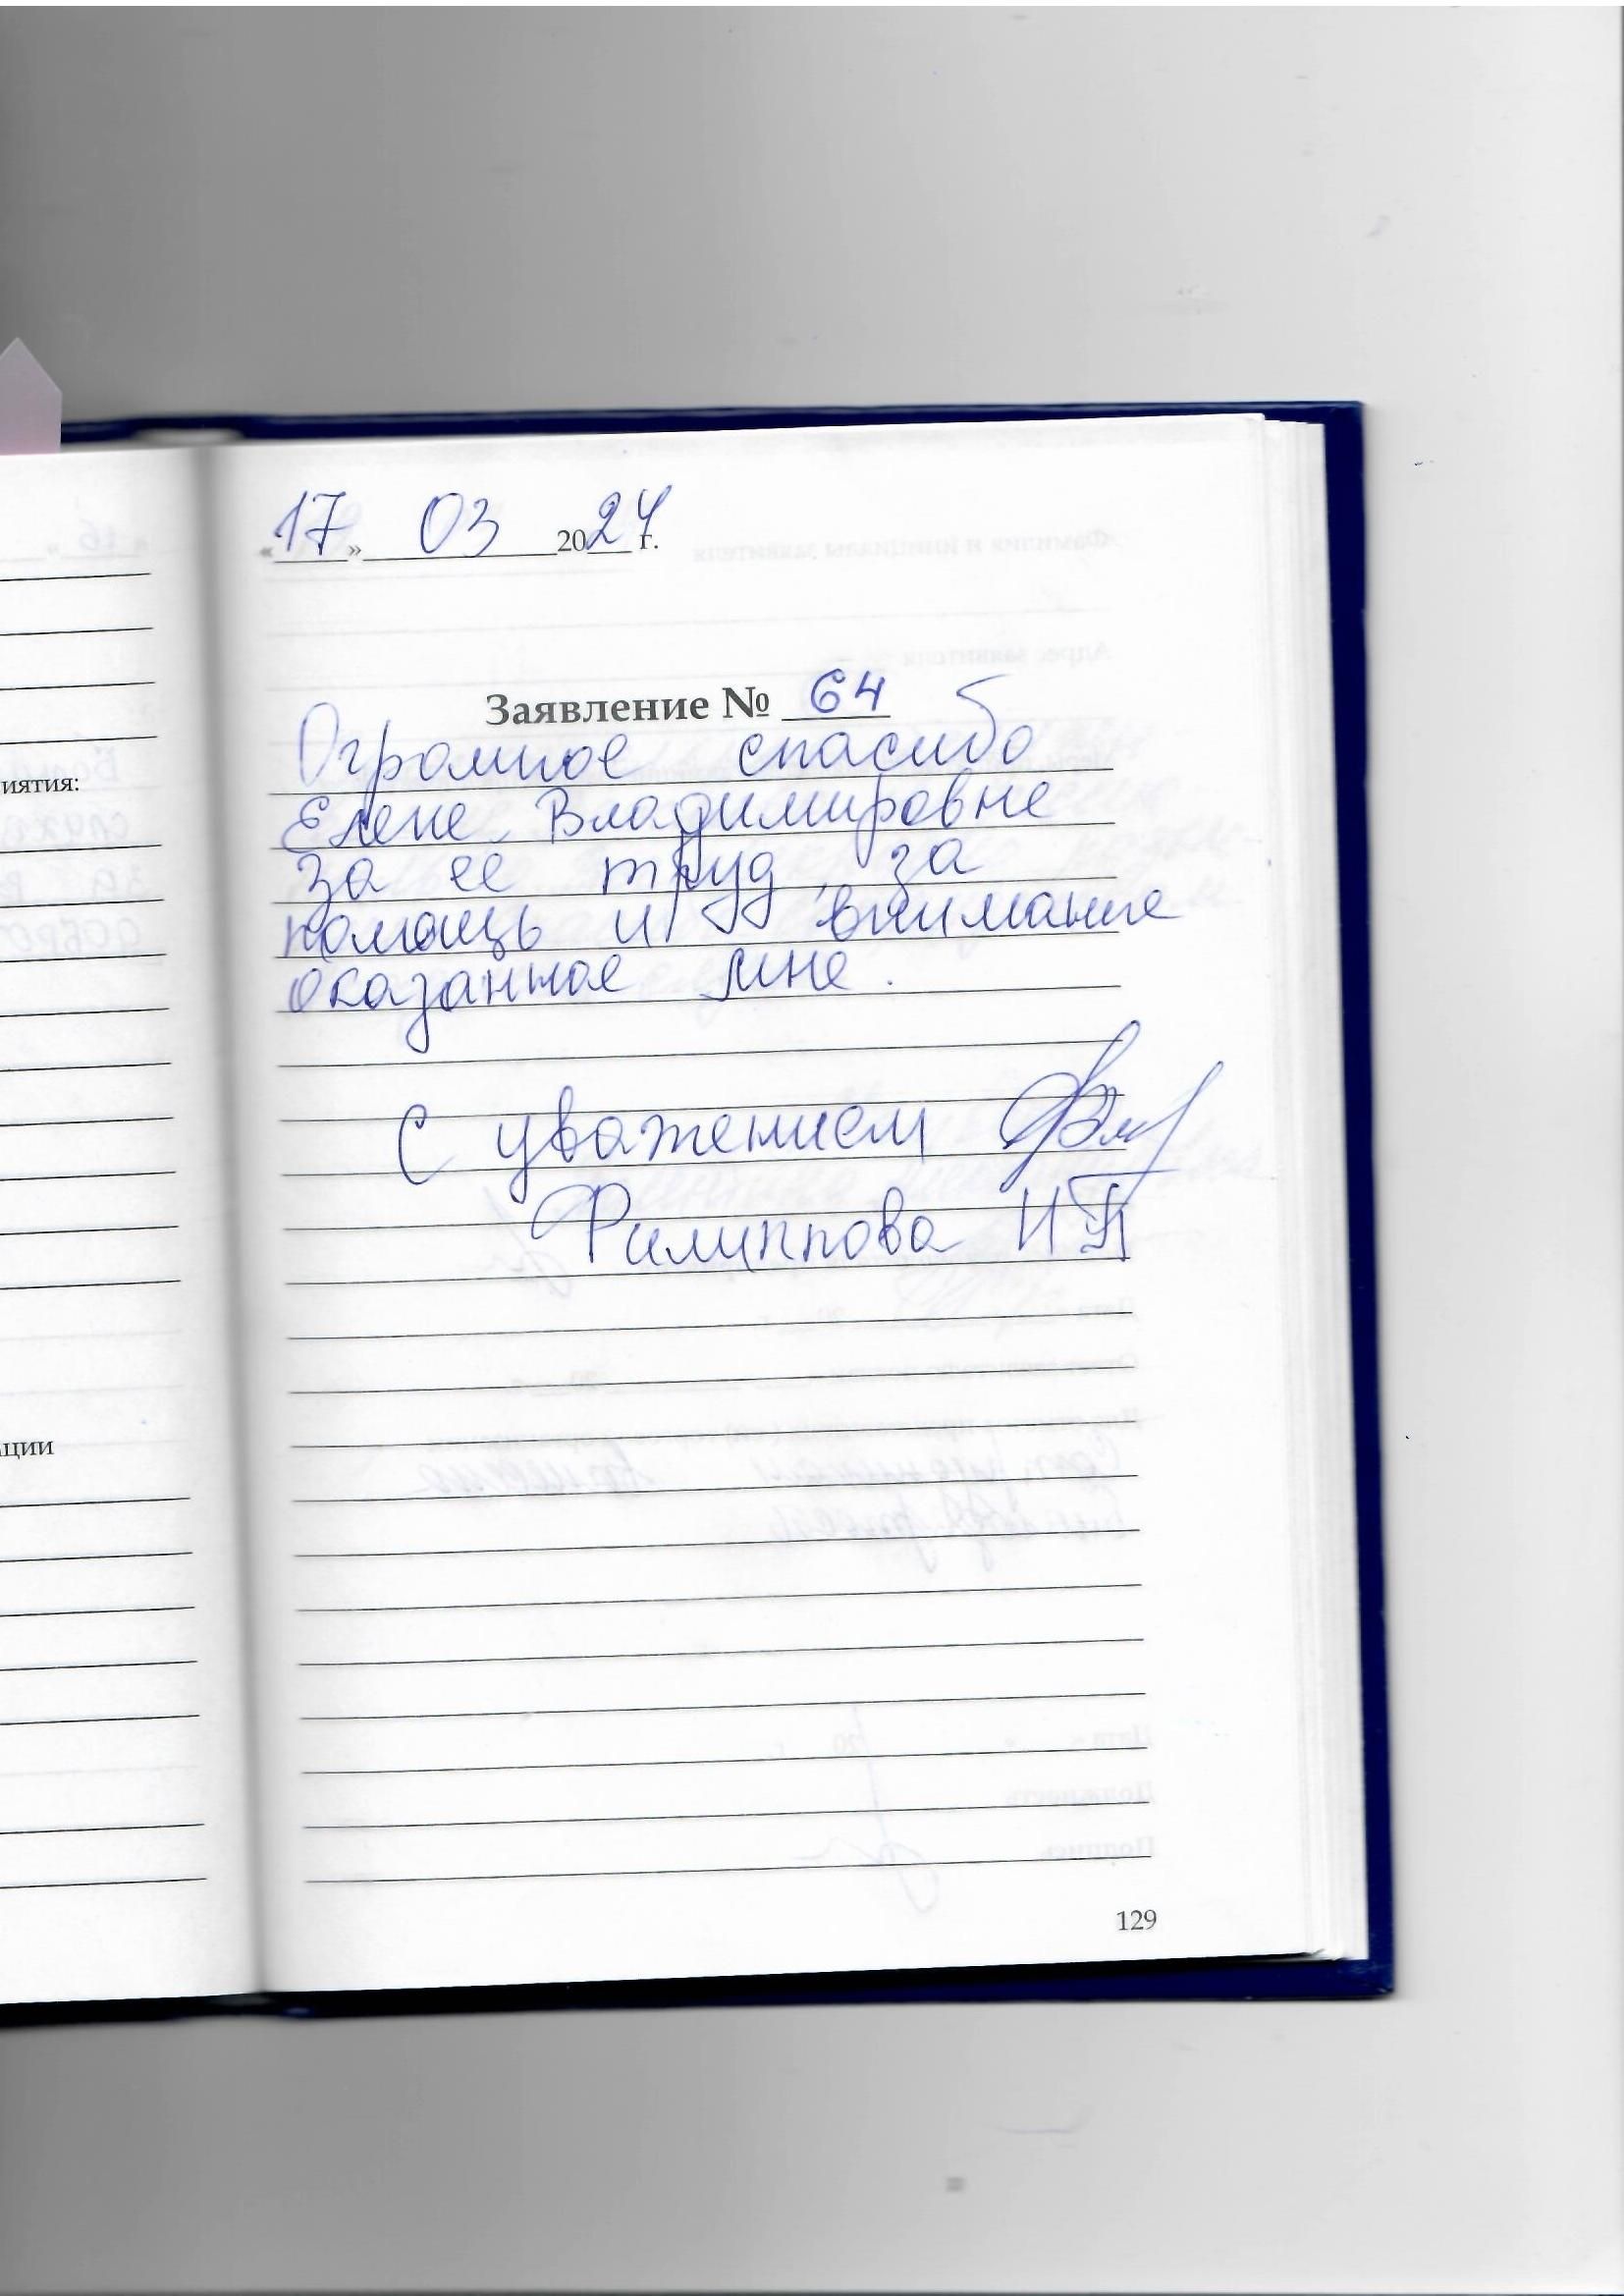 «17» 03 2024 г.
Заявление № 64
Огромное спасибо
Елене Владимировне
за её труд, за
помощь и внимание
оказанное мне.
С уважением
Филиппова И
129
иятия:
ции